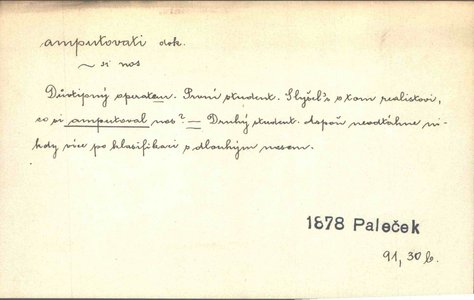 amputovati dok.
~ si nos
Důvtipný operateur. První student. Slyšel's o tom realistovi,
co si amputoval nos? — Druhý student. Aspoň neodtáhne ni-
kdy více po klasifikaci s dlouhým nosem.
1878 Paleček
91, 30 b.